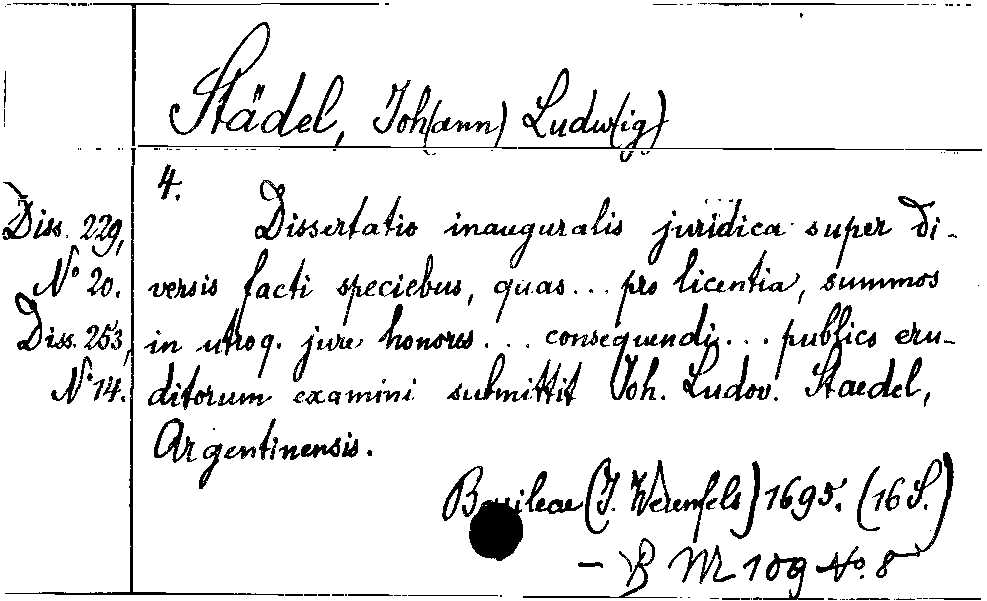 Städel, Joh(ann) Ludw(ig)
4.
Diss. 229, Dissertatio inauguralis juridica super di-
No 20. versis facti speciebus, quas... pro licentia, summos
Diss. 253, in utroq. jure honores... consequendi... publico eru-
No 14. ditorum examini submittit Joh. Ludov. Staedel,
Argentinensis.
Basileae (J. Werenfels) 1695. (16 S.)
— B M 109 No. 8